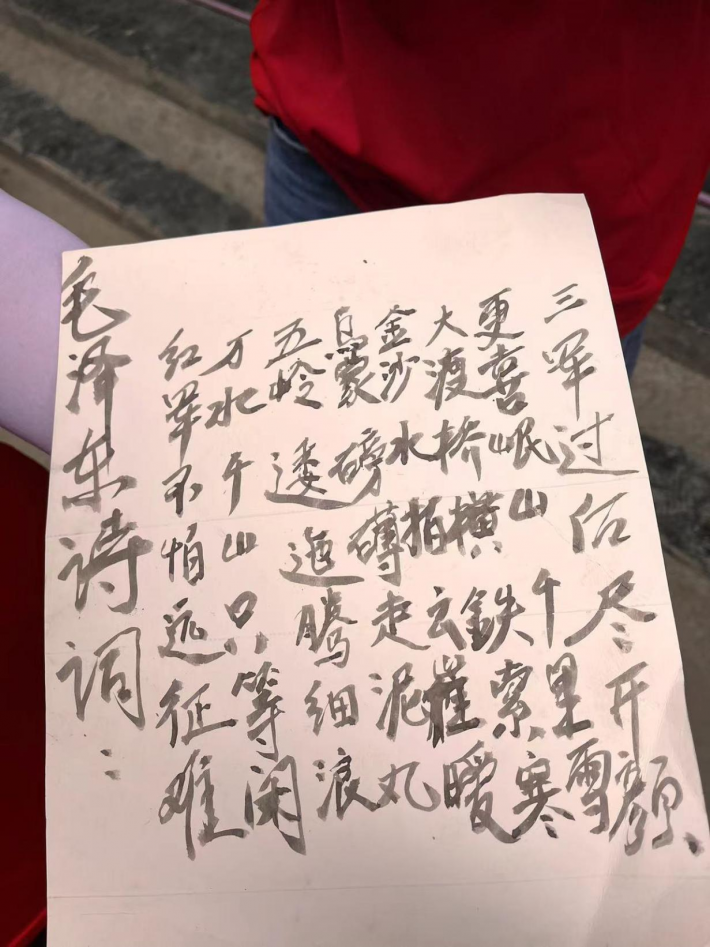 毛泽东诗词：
红军不怕远征难
万水千山只等闲
五岭逶迤腾细浪
乌蒙磅礴走泥丸
金沙水拍云崖暖
大渡桥横鉄索寒
更喜岷山千里雪
三军过后尽开颜